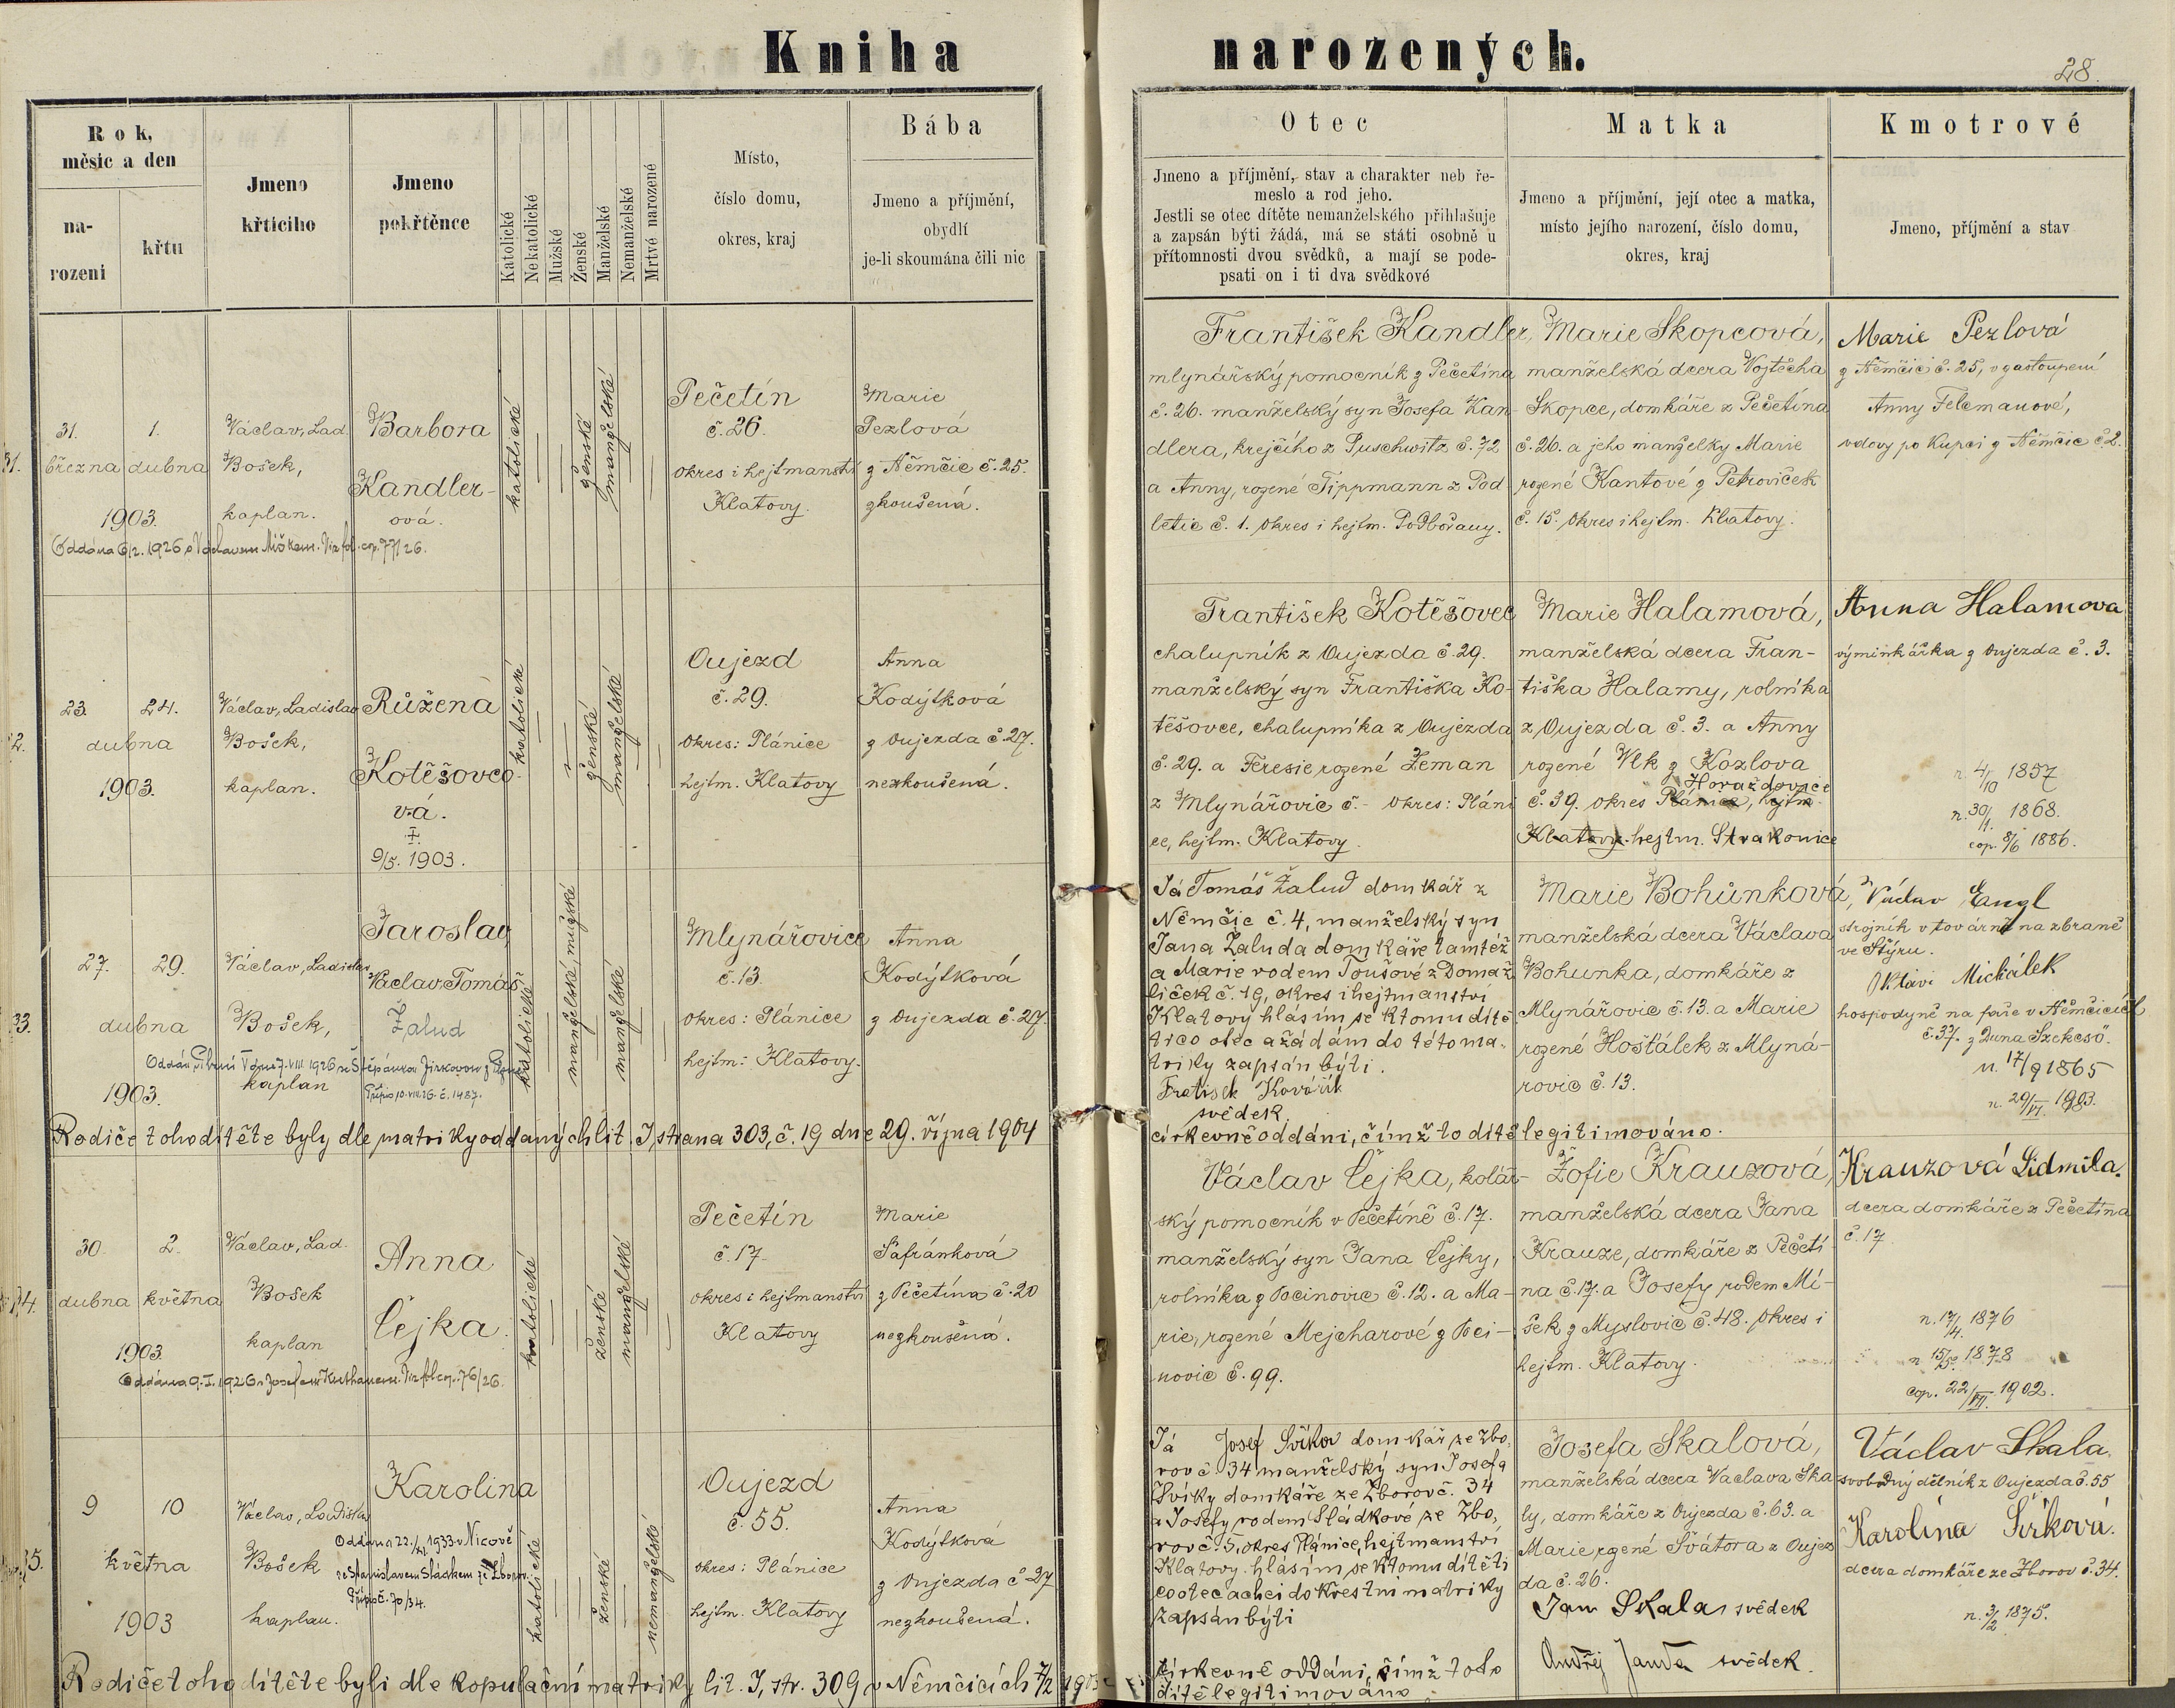 Kniha narozených.
28.
Rok,
měsic a den
na-
rozeni
křtu
Jmeno
křticiho
Jmeno
pokřtěnce
Katolické
Nekatolické
Mužské
Ženské
Manželské
Nemanželské
Mrtvé narozené
Místo,
číslo domu,
okres, kraj
Bába
Jmeno a příjmění,
obydlí
je-li skoumána čili nic
Otec
Jmeno a příjmění, stav a charakter neb ře-
meslo a rod jeho.
Jestli se otec dítěte nemanželského přihlašuje
a zapsán býti žádá, má se státi osobně u
přítomnosti dvou svědků, a mají se pode-
psati on i ti dva svědkové
Matka
Jmeno a příjmění, její otec a matka,
místo jejího narození, číslo domu,
okres, kraj
Kmotrové
Jmeno, příjmění a stav
31.
března
1.
dubna
1903.
Václav, Lad.
Bošek,
kaplan.
Barbora
Kandler-
ová.
katolické
ženské
manželské
Pečetín
č. 26.
okres i hejtmanství
Klatovy.
Marie
Pezlová
z Němčic č. 25.
zkoušená.
František Kandler,
mlynářský pomocník z Pečetína
č. 26. manželský syn Josefa Kan-
dlera, krejčího z Puschwitz č. 72
a Anny, rozené Tippmann z Pod
letic č. 1. okres i hejtm. Podbořany.
Marie Skopcová,
manželská dcera Vojtěcha
Skopce, domkáře z Pečetína
č. 26. a jeho manželky Marie
rozené Kantové z Petroviček
č. 15. okres i hejtm. Klatovy.
Marie Pezlová
z Němčic č. 25, v zastoupení
Anny Felemanové,
vdovy po kupci z Němčic č. 2.
23. 24.
dubna
1903.
Václav, Ladislav
Bošek,
kaplan.
Růžena
Kotěšovco-
vá.
9/5. 1903.
katolické
ženské
manželské
Oujezd
č. 29.
okres: Plánice
hejtm. Klatovy
Anna
Kodýtková
z Oujezda č. 27.
nezkoušená.
František Kotěšovec
chalupník z Oujezda č. 29.
manželský syn Františka Ko-
těšovce, chalupníka z Oujezda
č. 29. a Teresie rozené Zeman
z Mlynářovic č. - okres: Pláni
ce, hejtm. Klatovy.
Marie Halamová,
manželská dcera Fran-
tiška Halamy, rolníka
z Oujezda č. 3. a Anny
rozené Vlk z Kozlova
Horažďovice
č. 39. okres Plánice, hejtm.
Klatovy. hejtm. Strakonice
Anna Halamova
výminkářka z Oujezda č. 3.
n. 4/10 1857
n. 30/1. 1868.
cop. 8/6 1886.
33.
27. 29.
dubna
1903.
Václav, Ladislav
Bošek,
kaplan
Jaroslav,
Václav, Tomáš
Žalud
katolické
manželské, mužské
manželské
Mlynářovice
č. 13.
okres: Plánice
hejtm: Klatovy.
Anna
Kodýtková
z Oujezda č. 27.
Já Tomáš Žalud domkář z
Němčic č. 4, manželský syn
Jana Žaluda domkáře tamtéž
a Marie rodem Toušové z Domaž
liček č. 19, okres i hejtmanství
Klatovy hlásím se k tomu dítě
ti co otec a žádám do této ma-
triky zapsán býti.
svědek.
Marie Bohůnková,
manželská dcera Václava
Bohunka, domkáře z
Mlynářovic č. 13. a Marie
rozené Hošťálek z Mlyná-
rovic č. 13.
Václav Engl
strojník v továrně na zbraně
ve Štýru.
Michálek
hospodyně na faře v Němčicích
č. 37.
n. 17/9 1865
Rodiče tohoto dítěte byly dle matriky oddaných lit. I, strana 303, č. 19 dne 29. října 1904
církevně oddáni, čímž to dítě legitimováno.
30. 2.
dubna května
1903.
Václav, Lad.
Bošek
kaplan
Anna
Čejka.
katolické
ženské
manželské
Pečetín
č. 17.
okres i hejtmanství
Klatovy
Marie
Šafránková
z Pečetína č. 20
nezkoušená.
Václav Čejka, kolář-
ský pomocník v Pečetíně č. 17.
manželský syn Jana Čejky,
rolníka z Pocinovic č. 12. a Ma-
rie, rozené Mejcharové z Poci-
novic č. 99.
Žofie Krauzová,
manželská dcera Jana
Krauze, domkáře z Pečetí-
na č. 17. a Josefy rodem Mí-
šek z Myslovic č. 48. okres i
hejtm. Klatovy.
Krauzová Lidmila.
dcera domkáře z Pečetína
č. 17
n. 17/4. 1876
n. 15/5. 1878
cop. 22/VII. 1902.
9 10
května
1903
Václav, Ladislav
Bošek
kaplan.
Karolina
Oddána 22./ 1933 v Nicově
se Stanislavem Sládkem ze Zborov.
Přípis č. 70/34.
katolické
ženské
nemanželské
Oujezd
č. 55.
okres: Plánice
hejtm. Klatovy
Anna
Kodýtková
z Oujezda č 27
nezkoušená.
Já Josef domkář ze Zbo,
rov č. 34 manželský syn Josefa
domkáře ze Zborov č. 34
a Josefy rodem Sládkové ze Zbo,
rov č. 5, okres Plánice, hejtmanství
Klatovy. hlásím se k tomu dítěti
co otec a chci do křestní matriky
zapsán býti
Josefa Skalová,
manželská dcera Vaclava Ska
ly, domkáře z Oujezda č. 63. a
Marie rozené Švátora z Oujez
da č. 26.
Jan Skala svědek
Ondřej Janda svědek.
Václav Skala.
svobodný dělník z Oujezda č. 55
Karolína
dcera domkáře ze Zborov č. 34.
n. 3/2 1875.
Rodiče tohoto dítěte byli dle kopulační matriky lit. I, str. 309 v Němčicích
církevně oddáni, čímž toto
dítě legitimováno.